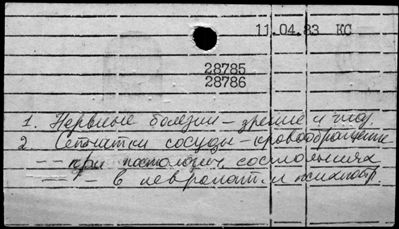 11.04.83 КС
28785
28786
1. Нервные болезни – зрение и
2 Сетчатки сосуды – кровообращение
-- при патологич. состояниях
-- - в невропат. и психиатр.